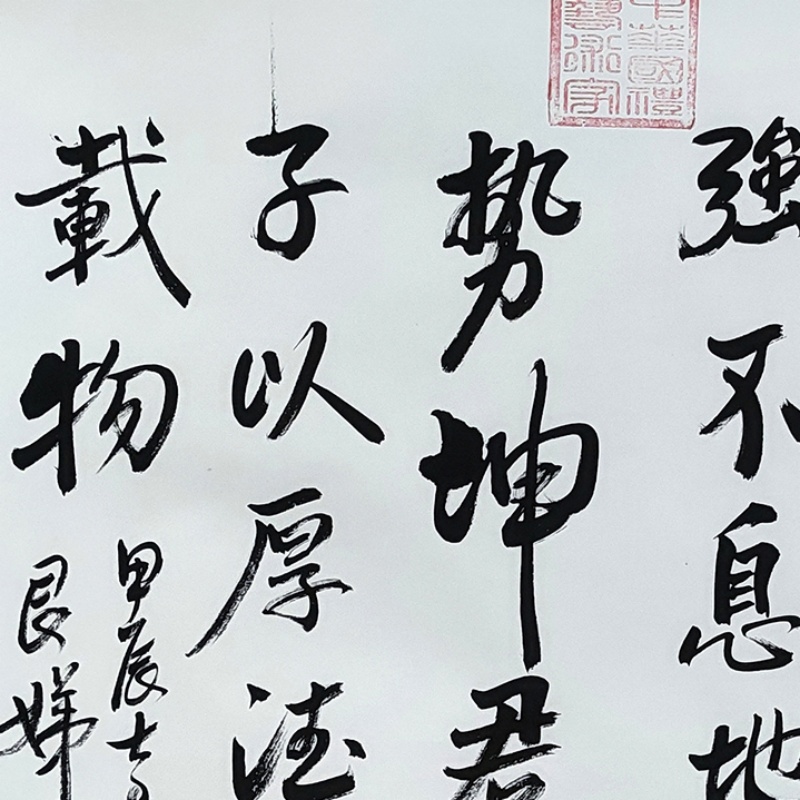 中華國禮
藝術
強不息地
势坤君
子以厚德
載物
甲辰